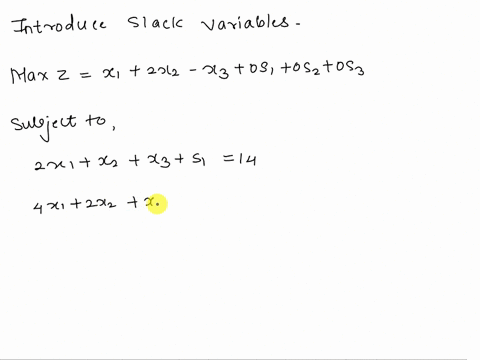 Introduce Slack variables.
Max Z = x₁ + 2x₂ - x₃ + 0S₁ + 0S₂ + 0S₃
Subject to,
2x₁ + x₂ + x₃ + S₁ = 14
4x₁ + 2x₂ + x